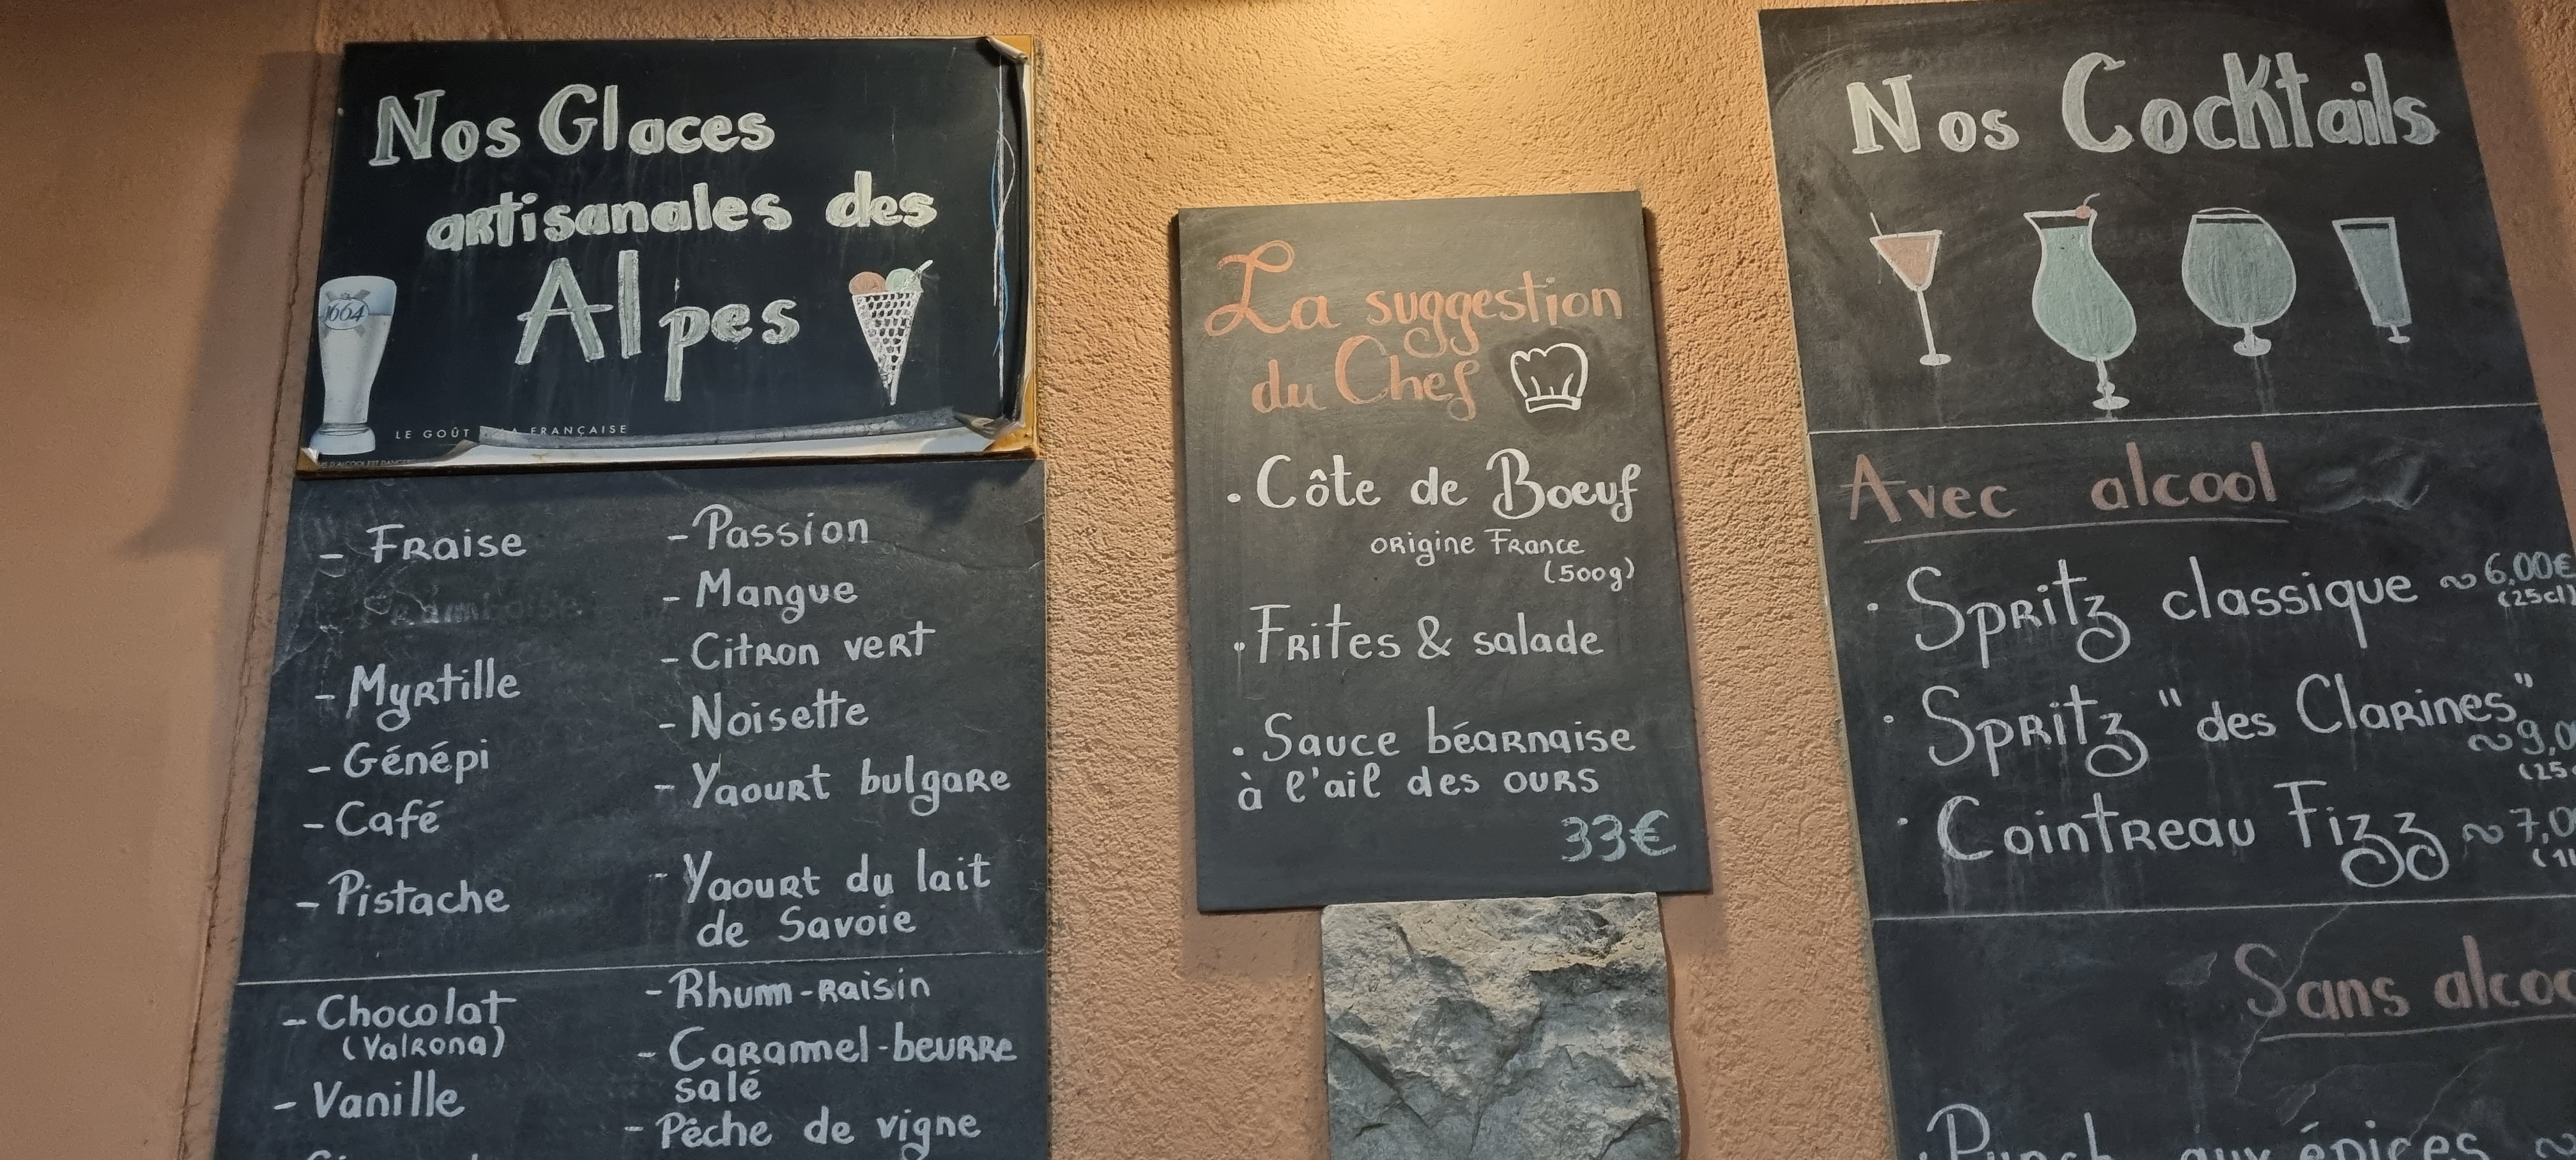 Nos Glaces
artisanales des
Alpes
1664
LE GOÛT À LA FRANÇAISE
- Fraise
- Myrtille
- Génépi
- Café
- Pistache
- Chocolat
(Valrona)
- Vanille
- Passion
- Mangue
- Citron vert
- Noisette
- Yaourt bulgare
- Yaourt du lait
de Savoie
- Rhum-raisin
- Caramel-beurre
salé
- Pêche de vigne
La suggestion
du Chef
• Côte de Boeuf
origine France
(500g)
• Frites & salade
• Sauce béarnaise
à l'ail des ours
33€
Nos Cocktails
Avec alcool
• Spritz classique ~ 6,00€
(25cl)
• Spritz "des Clarines"
~ 9,0
(25
• Cointreau Fizz ~ 7,0
Sans alcoo
• Punch aux épices ~